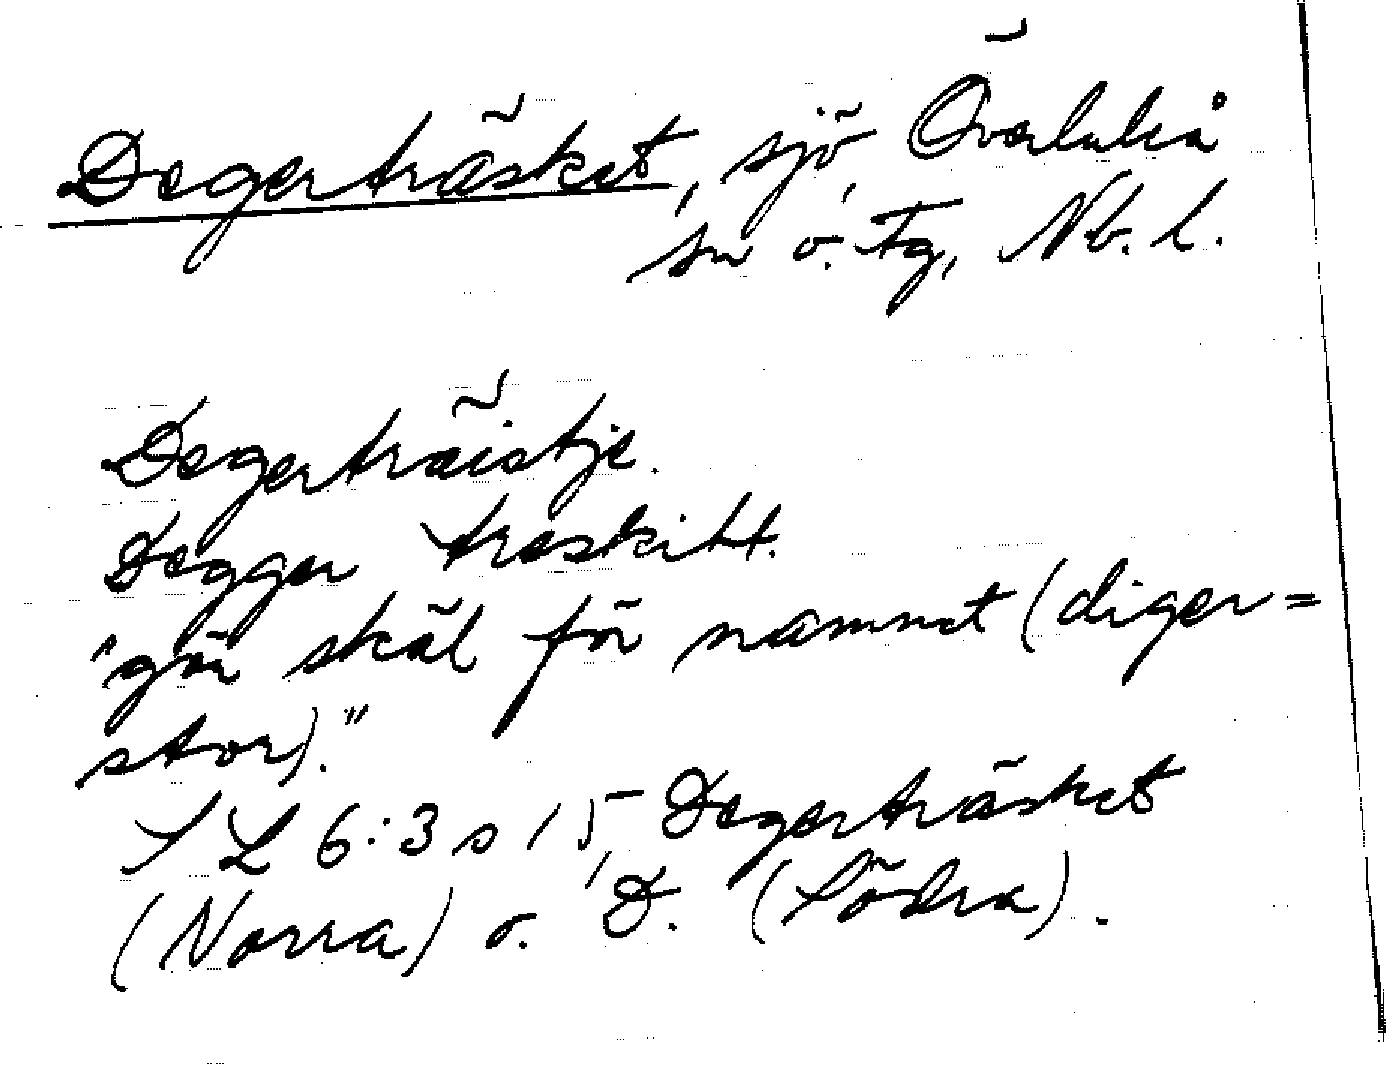 Degerträsket, sjö, Överluleå
sn o. tg, Nb. l.
Degerträistje.
Degger träskitt.
"gör skäl för namnet (diger=
stor)."
SL 6:3 s 15, Degerträsket
(Norra) o. D. (Södra).